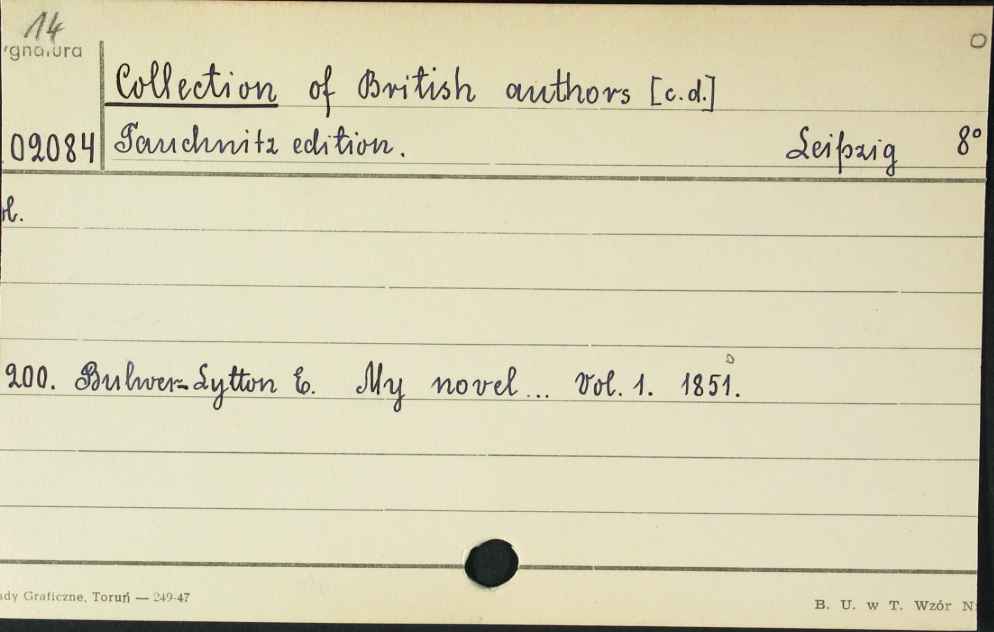 14
ygnatura
Collection of British authors [c.d.]
02084 Tauchnitz edition. Leipzig 8°
ol.
200. Bulwer-Lytton E. My novel... Vol. 1. 1851.
ady Graficzne, Toruń — 249-47
B. U. w T. Wzór N